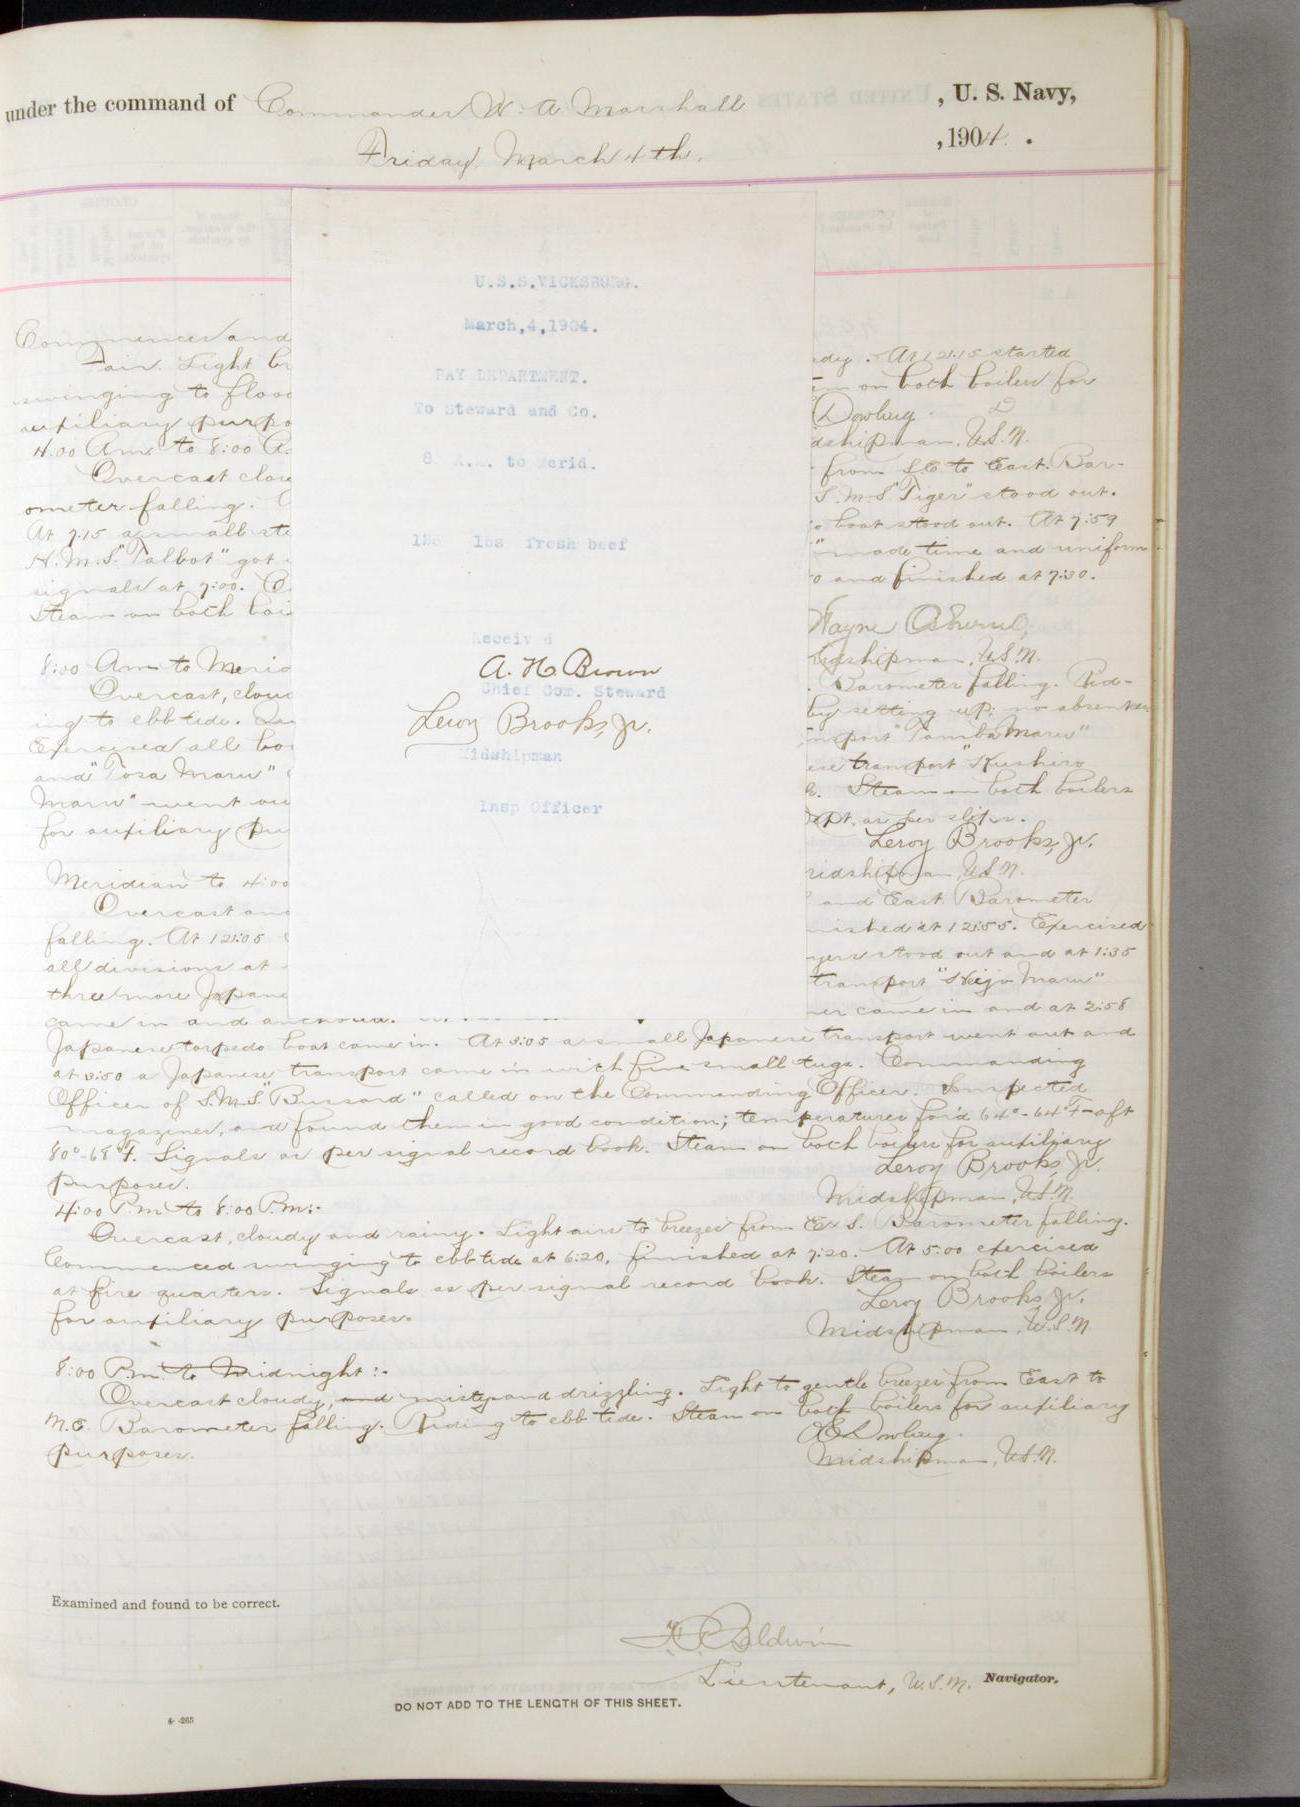 under the command of Commander W. A. Marshall , U. S. Navy,
Friday, March 4th. , 1904 .
U.S.S.VICKSBURG.
March,4,1904.
PAY DEPARTMENT.
To Steward and Co.
8 A.M. to Merid.
lbs fresh beef
Received
A. H. Brown
Chief Com. Steward
Leroy Brooks, Jr.
Midshipman
Insp Officer
Commences and
Fair. Light
ady. At 12:15 started
swinging to flood
on both boilers for
auxiliary
Dowling
4:00 Am to 8:00
dshipman, U.S.N.
Overcast
from S.E. to East. Bar-
ometer falling.
S.M.S. "Tiger" stood out.
At 7:15 a small
boat stood out. At 7:59
H.M.S. "Talbot" got
made time and uniform
signals at 7:00.
and finished at 7:30.
Steam on both
Wayne
dshipman, U.S.N.
8:00 Am to
Barometer falling. Rid-
Overcast,
by setting up; no absentees
ing to ebb tide.
"Tamba Maru"
Exercised all
transport "Kushiro
and "Tosa Maru"
Steam on both boilers
Maru" went
Dept. as per slips.
for auxiliary
Leroy Brooks, Jr.
idshipman, U.S.N.
Meridian to 4:00
and East. Barometer
Overcast and
nished at 12:55. Exercised
falling. At 12:05
stood out and at 1:35
all divisions at
transport "Heijo Maru"
three more
came in and at 2:58
came in and anchored.
Japanese torpedo boat came in. At 3:05 a small Japanese transport went out and
at 3:50 a Japanese transport came in with five small tugs. Commanding
Officer of S.M.S. "Bussard" called on the Commanding Officer. Inspected
magazines, and found them in good condition; temperatures for'd 64°-64°F-aft
80°-68°F. Signals as per signal record book. Steam on both boilers for auxiliary
purposes.
Leroy Brooks, Jr.
Midshipman, U.S.N.
4:00 P.m. to 8:00 P.m:-
Overcast, cloudy and rainy. Light airs to breezes from E x S. Barometer falling.
Commenced swinging to ebb tide at 6:20, finished at 7:20. At 5:00 exercised
at fire quarters. Signals as per signal record book. Steam on both boilers
for auxiliary purposes.
Leroy Brooks, Jr.
Midshipman, U.S.N
8:00 P.m. to Midnight:-
Overcast cloudy, and misty and drizzling. Light to gentle breezes from East to
N.E. Barometer falling. Riding to ebb tide. Steam on both boilers for auxiliary
purposes.
Dowling.
Midshipman, U.S.N.
Examined and found to be correct.
Baldwin
Lieutenant, U.S.N. Navigator.
DO NOT ADD TO THE LENGTH OF THIS SHEET.